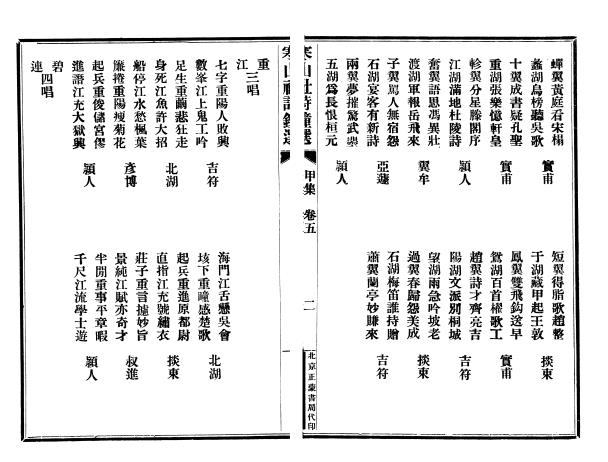 蟬翼黃庭看宋榻
蠡湖烏榜聽吳歌 實甫
短翼得脂歌趙整
于湖藏甲起王敦 掞東
十翼成書疑孔聖
重湖張樂憶軒皇 實甫
鳳翼雙飛釵送早
鴛湖百首櫂歌工 實甫
軫翼分星滕閣序
江湖滿地杜陵詩 穎人
趙翼詩才齊亮吉
陽湖文派別桐城 吉符
奮翼語思馮異壯
渡湖軍報岳飛來 翼牟
望湖雨急吟坡老
過翼春歸怨美成 掞東
子翼罵人無宿怨
石湖宴客有新詩 亞蘧
石湖梅笛誰持贈
蕭翼蘭亭妙賺來 吉符
兩翼夢摧驚武曌
五湖爲長恨桓元 穎人
寒山社詩鐘選 甲集 卷五 二
北京正蒙書局代印
寒山社詩鐘選
重江 三唱
七字重陽人敗興
數峯江上鬼工吟 吉符
海門江舌懸吳會
垓下重瞳感楚歌 北湖
足生重繭悲狂走
身死江魚許大招 北湖
起兵重進原都尉
直指江充號繡衣 掞東
船停江水愁楓葉
簾捲重陽瘦菊花 彥博
莊子重言據妙旨
景純江賦亦奇才 叔進
起兵重俊儲宮僇
進譖江充大獄興 穎人
半閒重事平章暇
千尺江流學士遊 穎人
碧連 四唱